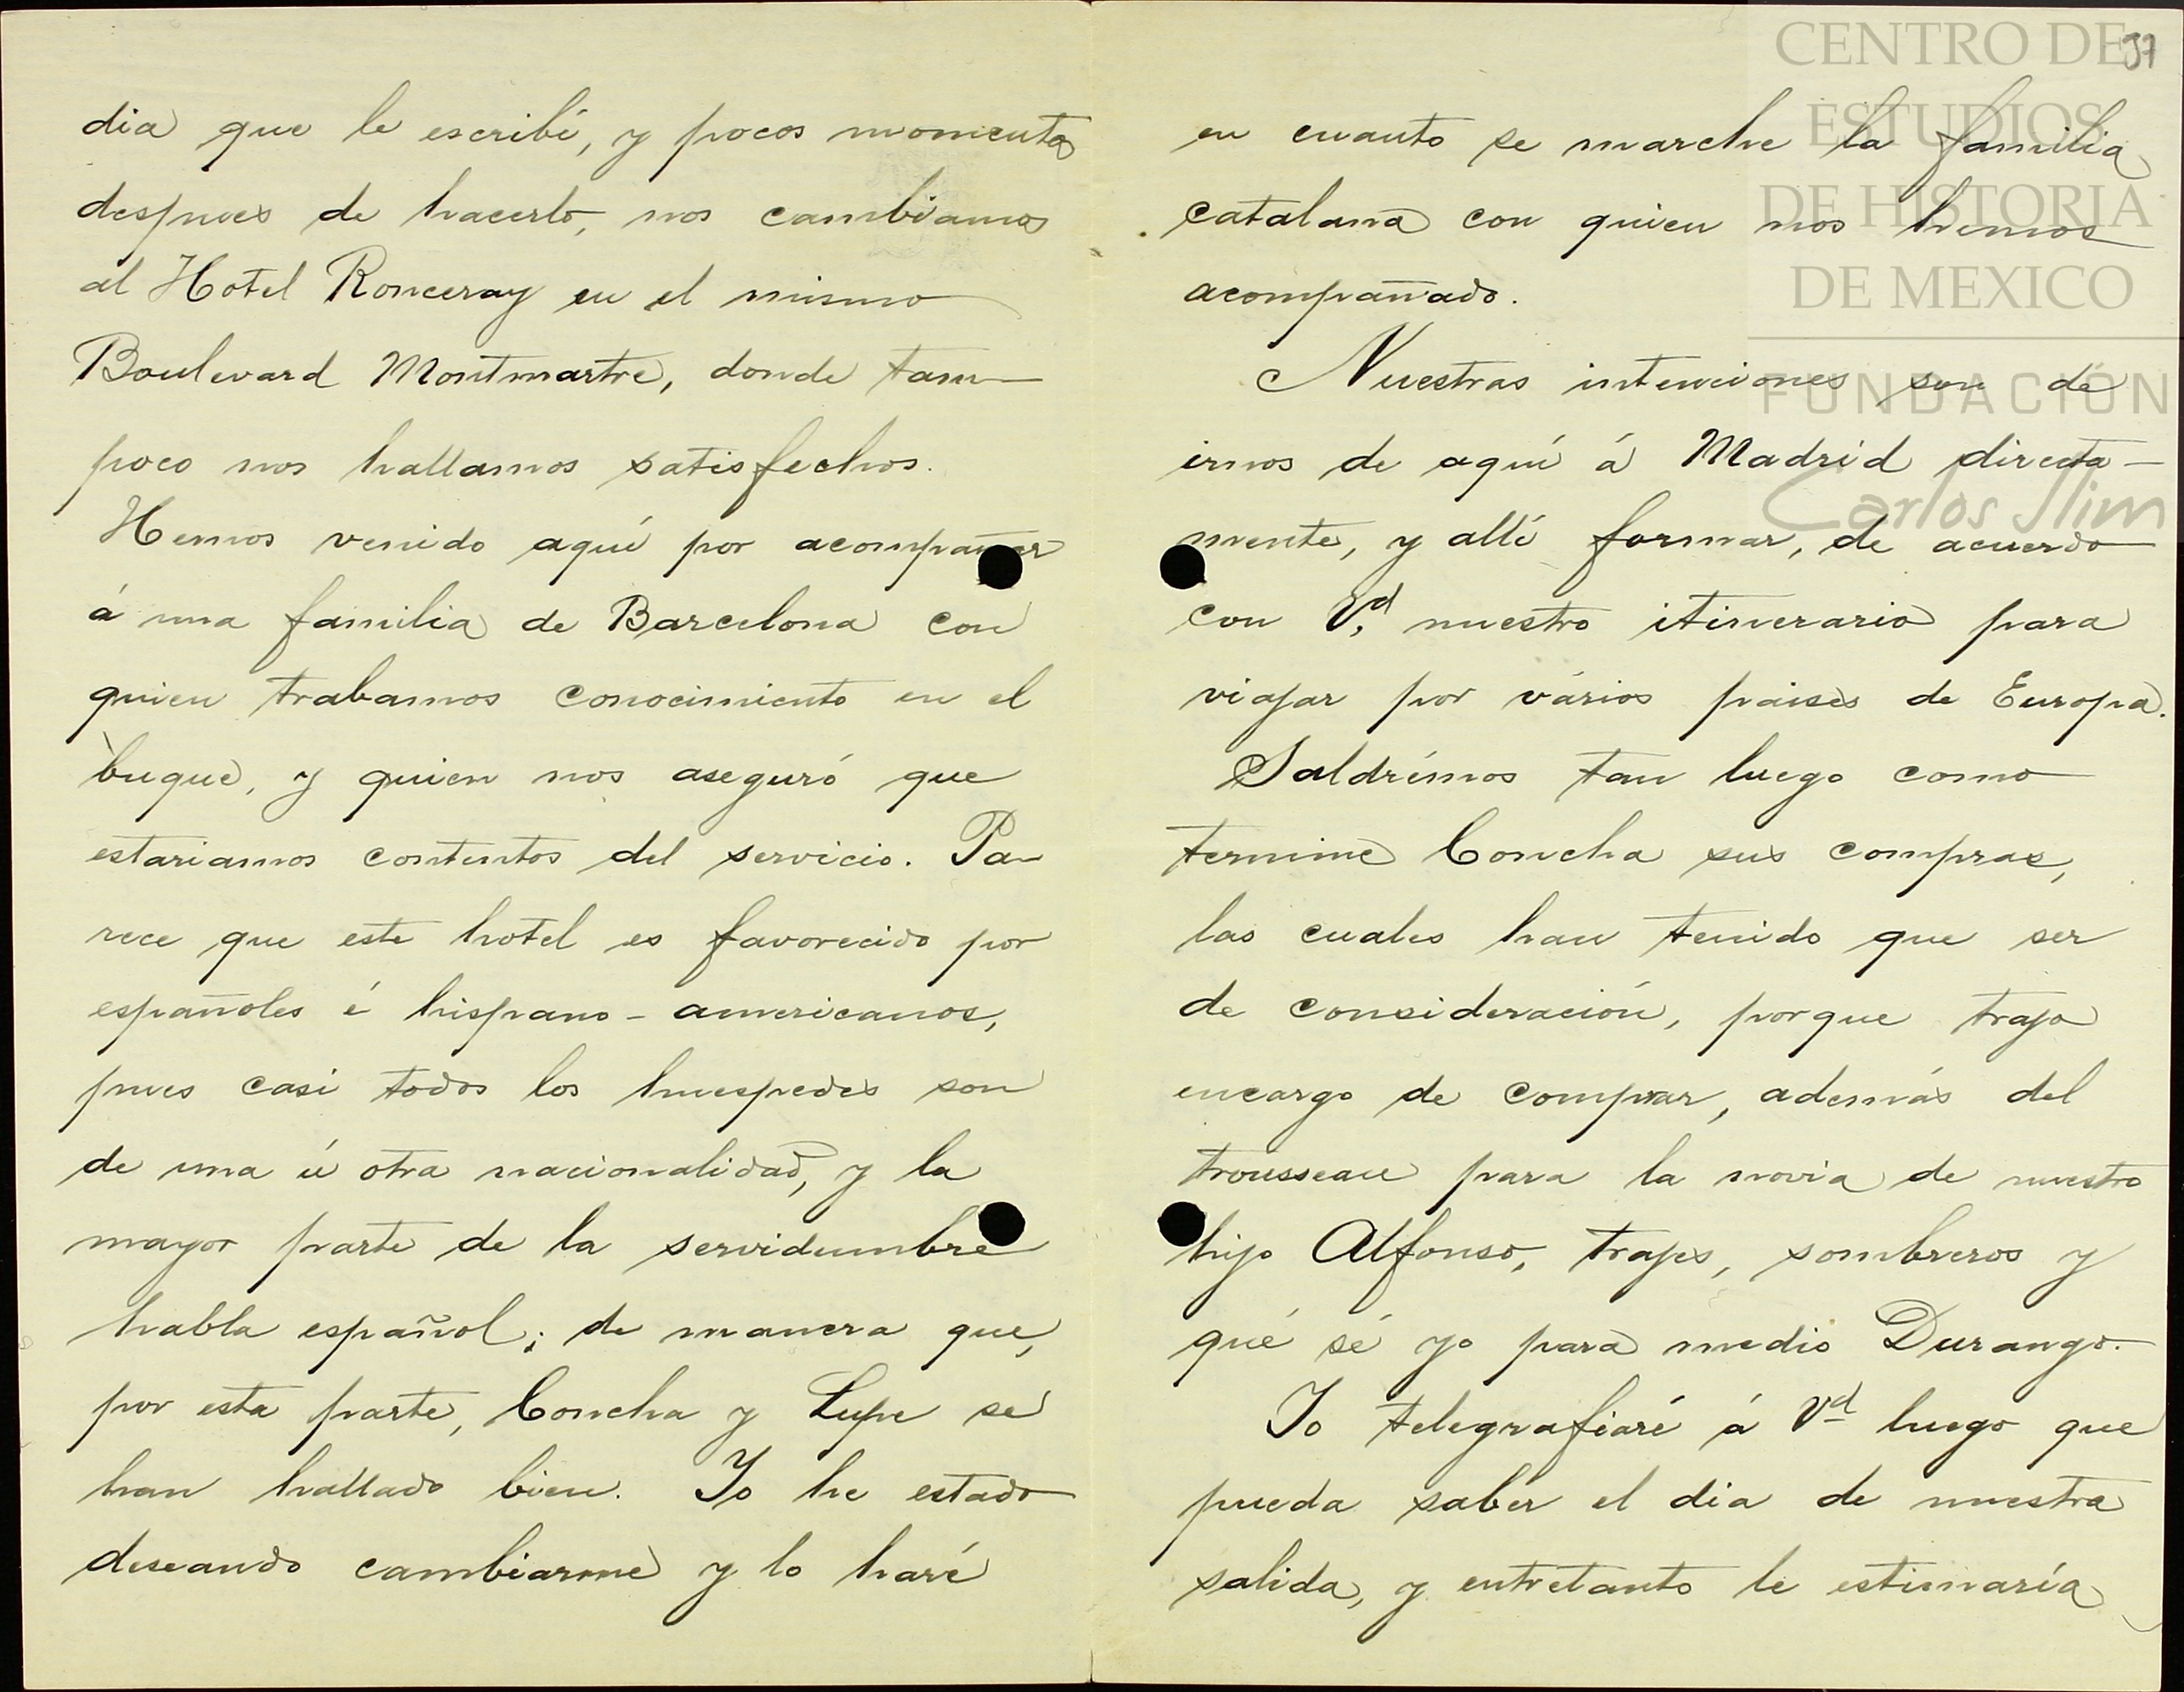 dia que le escribí, y pocos momentos
despues de hacerlo, nos cambiamos
al Hotel Ronceray en el mismo
Boulevard Montmartre, donde tam-
poco nos hallamos satisfechos.
Hemos venido aquí por acompañar
á una familia de Barcelona con
quien trabamos conocimiento en el
buque, y quien nos aseguró que
estariamos contentos del servicio. Pa-
rece que este hotel es favorecido por
españoles é hispano-americanos,
pues casi todos los huespedes son
de una ú otra nacionalidad, y la
mayor parte de la servidumbre
habla español; de manera que,
por esta parte, Concha y Lupe se
han hallado bien. Yo he estado
deseando cambiarme y lo haré
37
en cuanto se marche la familia
catalana con quien nos hemos
acompañado.
Nuestras intenciones son de
irnos de aquí á Madrid directa-
mente, y allí formar, de acuerdo
con Vd, nuestro itinerario para
viajar por vários paises de Europa.
Saldrémos tan luego como
termine Concha sus compras,
las cuales han tenido que ser
de consideración, porque trajo
encargo de comprar, además del
trousseau para la novia de nuestro
hijo Alfonso, trajes, sombreros y
qué sé yo para medio Durango.
Yo telegrafiaré á Vd luego que
pueda saber el dia de nuestra
salida, y entretanto le estimaría
CENTRO DE
ESTUDIOS
DE HISTORIA
DE MEXICO
FUNDACIÓN
Carlos Slim